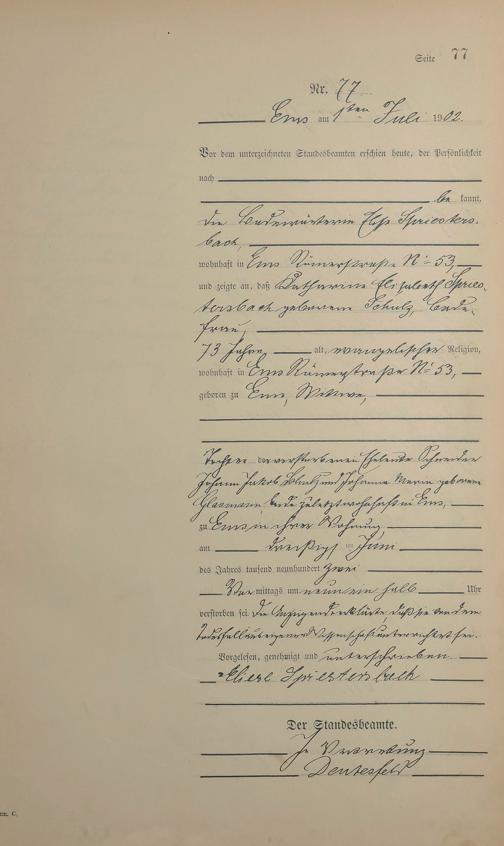 Seite 77
Nr. 77
Ems am 1ten Juli 1902.
Vor dem unterzeichneten Standesbeamten erschien heute, der Persönlichkeit
nach
be kannt,
die Badewärterin Spriesters-
bach,
wohnhaft in Ems Römerstraße No 53,
und zeigte an, daß Katharine Elisabeth Spries-
tersbach geborene Schulz, Bade-
frau,
73 Jahre, alt, evangelischer Religion,
wohnhaft in Ems Römerstraße No 53,
geboren zu Ems, Witwe,
Tochter der verstorbenen Eheleute Schneider
Johann Jakob Schulz und Johanna Maria geborene
beide zuletzt wohnhaft in Ems,
zu Ems in ihrer Wohnung
am dreißigsten Juni
des Jahres tausend neunhundert zwei
Vor mittags um neun ein halb Uhr
verstorben sei. Die Anzeigende erklärte, daß sie von dem
Todesfall aus eigener Wissenschaft unterrichtet sei.
Vorgelesen, genehmigt und unterschrieben.
Eliese Spriestersbach
Der Standesbeamte.
In Vertretung